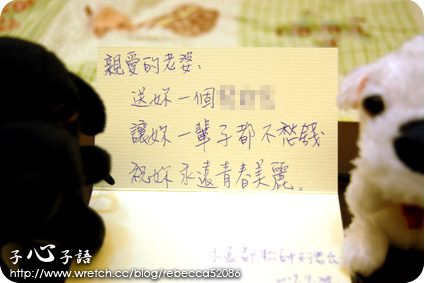 親愛的老婆：
送妳一個
讓妳一輩子都不愁錢
祝妳永遠青春美麗。
子心子語
http://www.wretch.cc/blog/rebecca52086